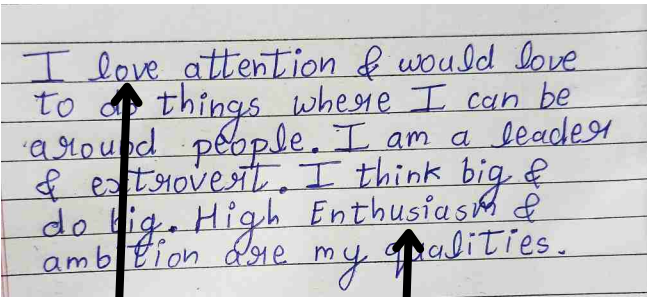 I love attention & would love
to do things where I can be
around people. I am a leader
& extrovert. I think big &
do big. High Enthusiasm &
ambition are my qualities.